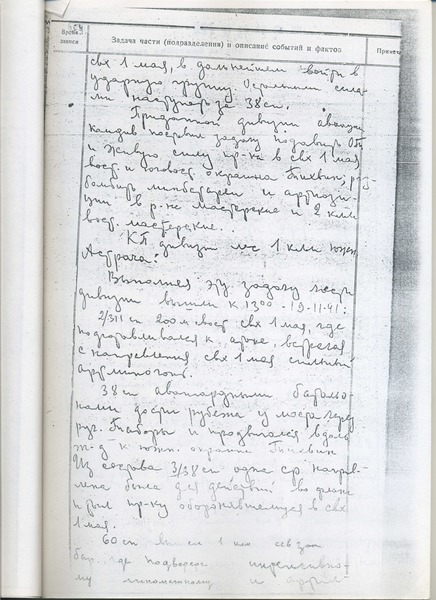 Время записи
Задача части (подразделения) и описание событий и фактов
Примеча
свх 1 мая, в дальнейшем войти в
ударную группу. Остальными сила-
ми наступать за 38 сп.
Приданной дивизии авиации
див задачу подавить ОТ
и живую силу пр-ка в свх 1 мая
вост и юговост окраина Тихвин,
бомбить минбатареи и артпози-
ции в р-не мастерские и 2 клм
вост. мастерские.
КП дивизии лес 1 клм южн
Астрача.
Выполняя эту задачу части
дивизии вышли к 13 00 - 19-11-41:
2/311 сп 200 м вост свх 1 мая, где
подготовлялся к атаке, встречая
с направления свх 1 мая сильный
артминогонь.
38 сп авангардными баталь-
онами достиг рубежа у моста через
руч. Таборы и продвигался вдоль
ж-д к южн. окраине Тихвин
Из состава 3/38 сп одна ср направ-
лена была для действий во фланг
и тыл пр-ку оборонявшемуся в свх
1 мая.
60 сп вышел 1 клм сев зап
где подвергся интенсивно-
му минометному и артил-